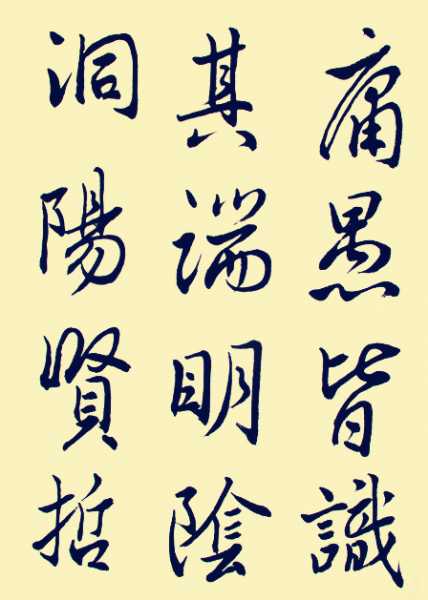 庸愚皆識
其端明陰
洞陽賢哲